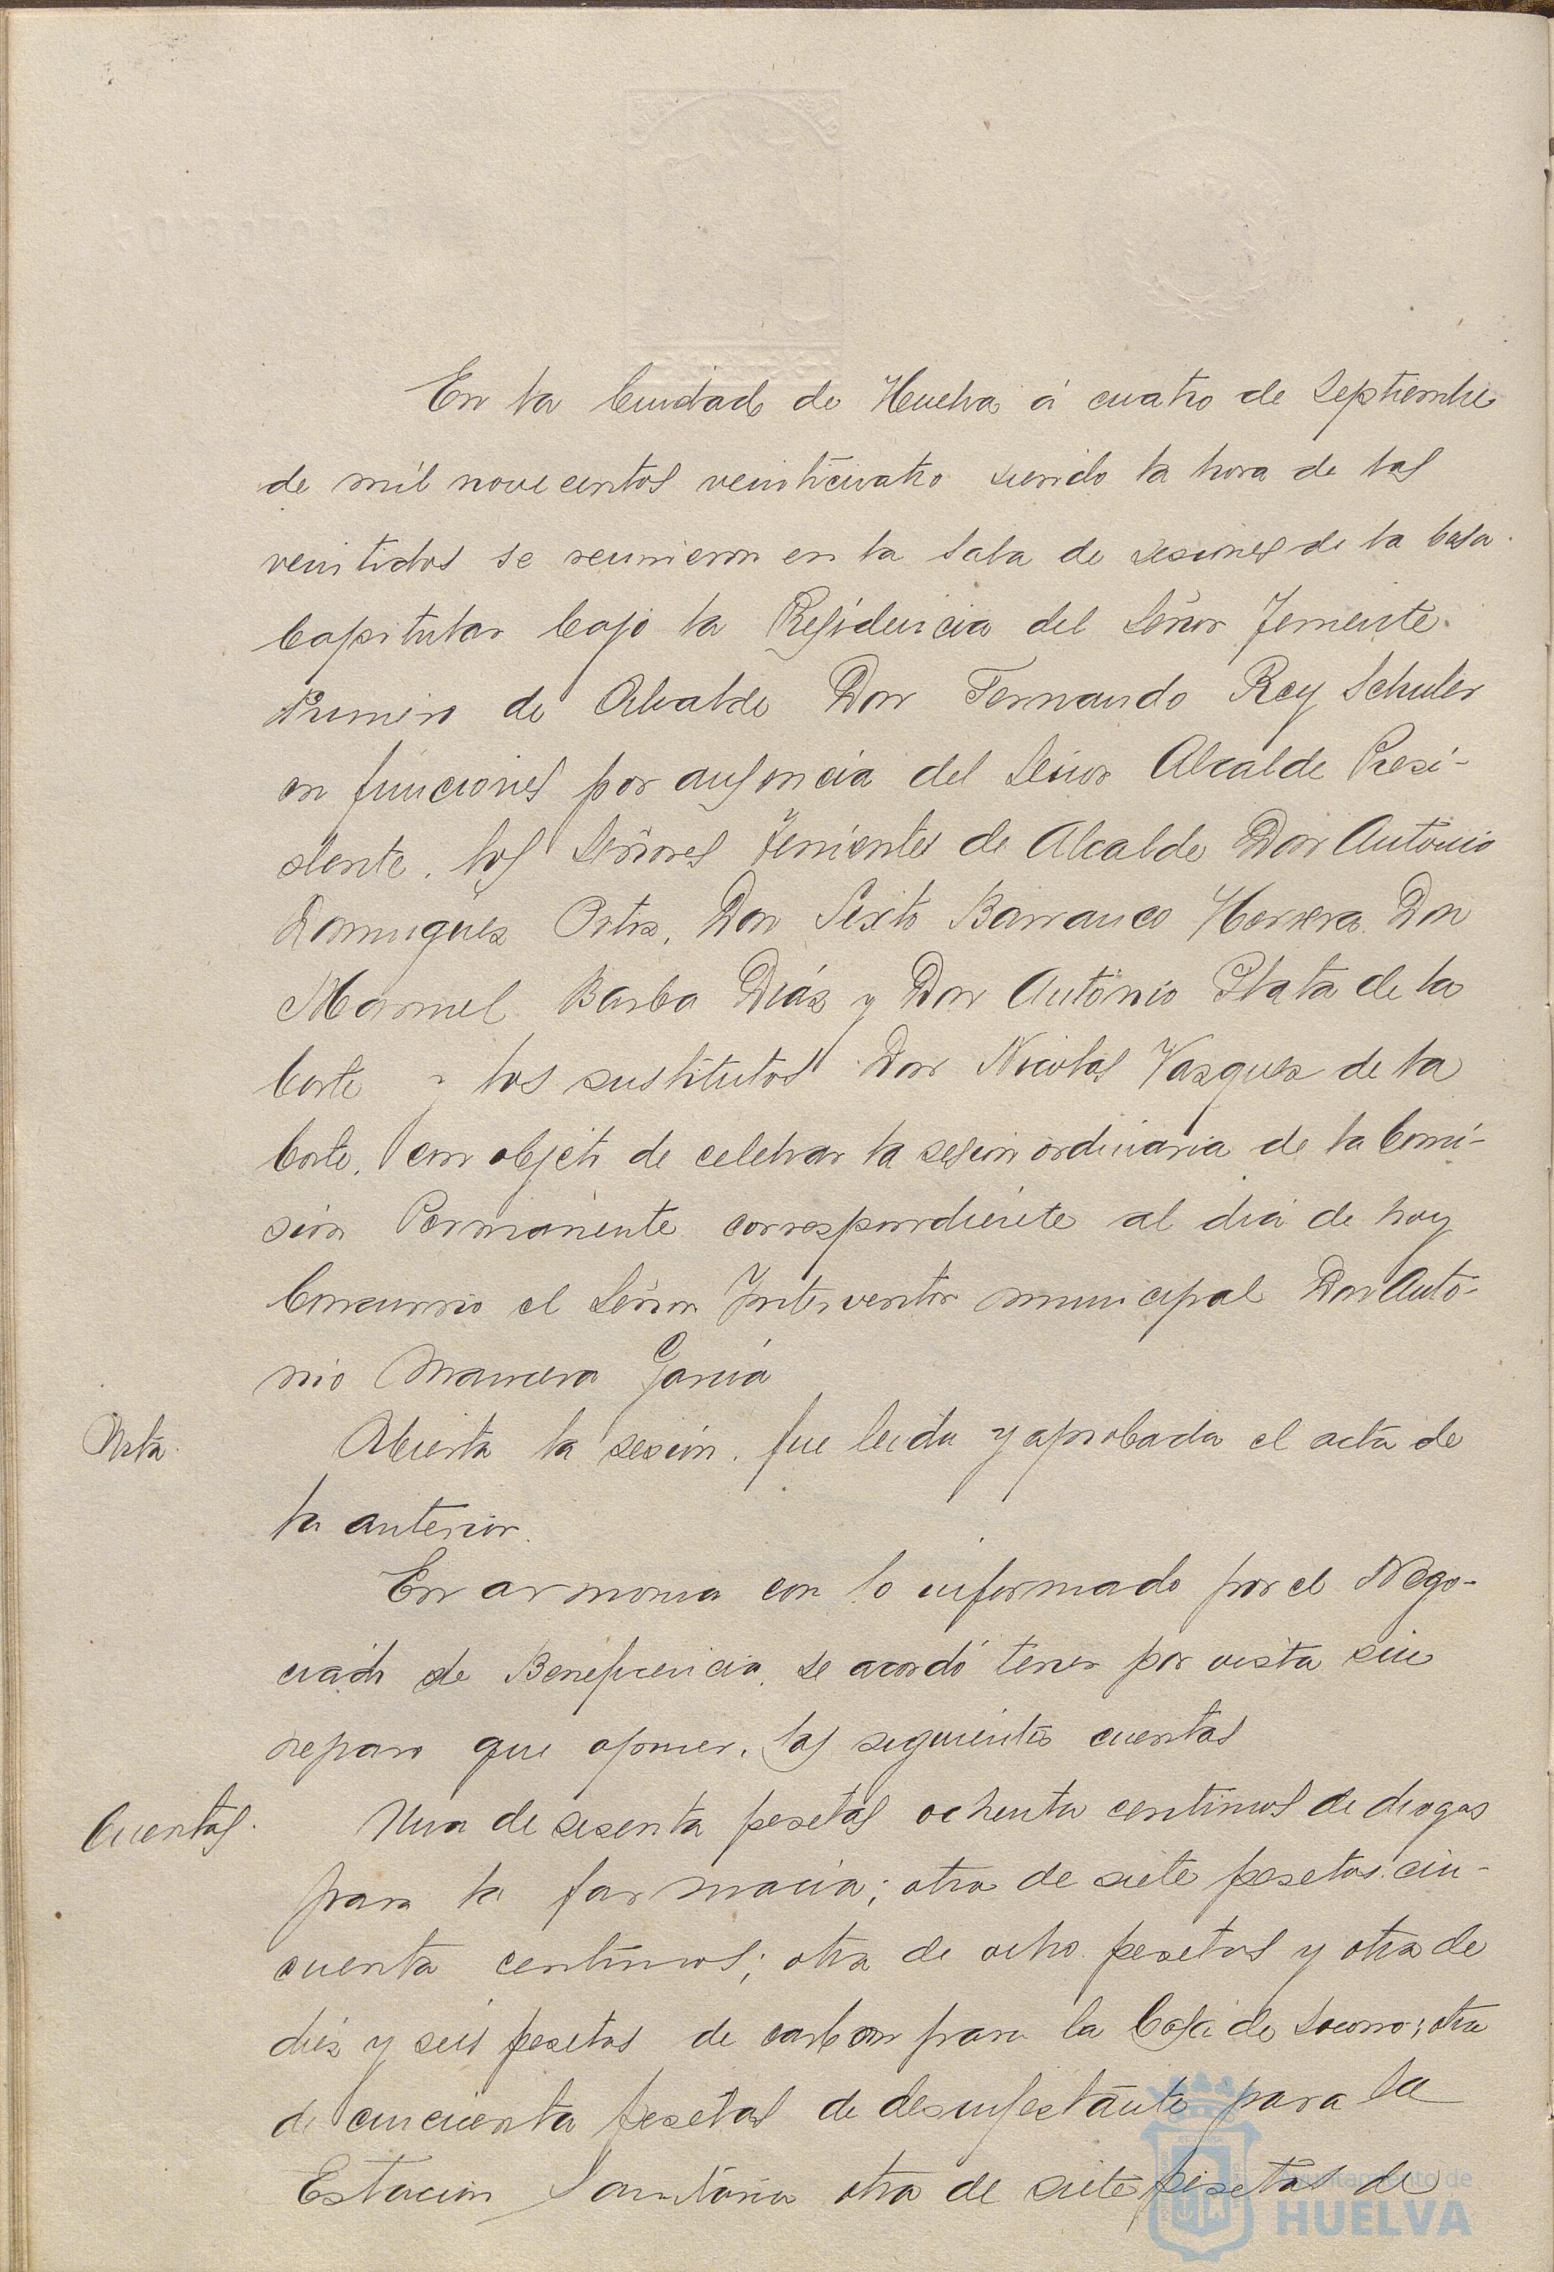 En la Ciudad de Huelva á cuatro de Septiembre
de mil novecientos veinticuatro siendo la hora de las
veintidos se reunieron en la Sala de sesiones de la Casa
Capitular bajo la Presidencia del Señor Teniente
Primero de Alcalde Don Fernando Rey Schuler
en funciones por ausencia del Señor Alcalde Presi-
dente, los Señores Tenientes de Alcalde Don Antonio
Dominguez Ortiz, Don Sixto Barranco Herrera, Don
Manuel Barba Diáz y Don Antonio Plata de la
Corte y los sustitutos Don Nicolas Vazquez de la
Corte, con objeto de celebrar la sesion ordinaria de la Comi-
sion Permanente correspondiente al dia de hoy
Concurrio el Señor Interventor municipal Don Anto-
nio Mancera García
Acta.
Abierta la sesion, fue leida y aprobada el acta de
la anterior.
En armonia con lo informado por el Nego-
ciado de Beneficencia, se acordó tener por vista sin
reparo que oponer, las siguientes cuentas
Cuentas.
Una de sesenta pesetas ochenta centimos de drogas
para la farmacia; otra de siete pesetas cin-
cuenta centimos; otra de ocho pesetas y otra de
diez y seis pesetas de carbon para la Casa de Socorro; otra
de cincuenta pesetas de desinfectante para la
Estacion Sanitaria otra de siete pesetas de
Ayuntamiento de
HUELVA